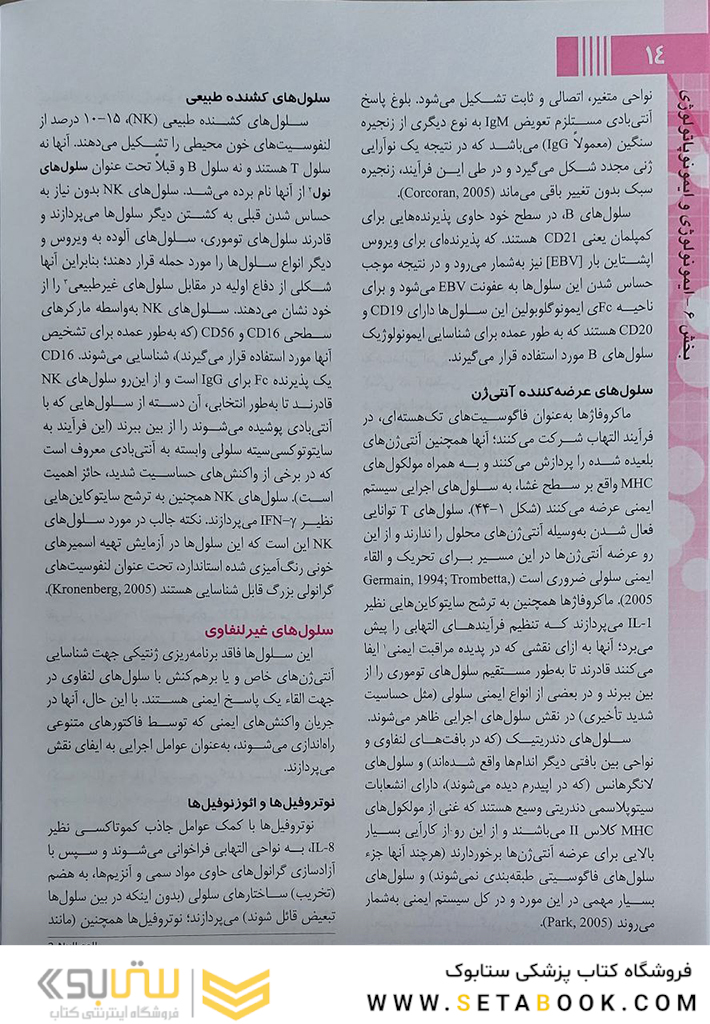 ۱۴
بخش ۶ – ایمونولوژی و ایمونوپاتولوژی
نواحی متغیر، اتصالی و ثابت تشکیل می‌شود. بلوغ پاسخ
آنتی‌بادی مستلزم تعویض IgM به نوع دیگری از زنجیره
سنگین (معمولاً IgG) می‌باشد که در نتیجه یک نوآرایی
ژنی مجدد شکل می‌گیرد و در طی این فرآیند، زنجیره
سبک بدون تغییر باقی می‌ماند (Corcoran, 2005).
سلول‌های B، در سطح خود حاوی پذیرنده‌هایی برای
کمپلمان یعنی CD21 هستند. که پذیرنده‌ای برای ویروس
اپشتاین بار [EBV] نیز به‌شمار می‌رود و در نتیجه موجب
حساس شدن این سلول‌ها به عفونت EBV می‌شود و برای
ناحیه Fcی ایمونوگلوبولین این سلول‌ها دارای CD19 و
CD20 هستند که به طور عمده برای شناسایی ایمونولوژیک
سلول‌های B مورد استفاده قرار می‌گیرند.
سلول‌های عرضه‌کننده آنتی‌ژن
ماکروفاژها به‌عنوان فاگوسیت‌های تک‌هسته‌ای، در
فرآیند التهاب شرکت می‌کنند؛ آنها همچنین آنتی‌ژن‌های
بلعیده شده را پردازش می‌کنند و به همراه مولکول‌های
MHC واقع بر سطح غشا، به سلول‌های اجرایی سیستم
ایمنی عرضه می‌کنند (شکل ۱-۴۴). سلول‌های T توانایی
فعال شدن به‌وسیله آنتی‌ژن‌های محلول را ندارند و از این
رو عرضه آنتی‌ژن‌ها در این مسیر برای تحریک و القاء
ایمنی سلولی ضروری است (Germain, 1994; Trombetta,
2005). ماکروفاژها همچنین به ترشح سایتوکاین‌هایی نظیر
IL-1 می‌پردازند که تنظیم فرآیندهای التهابی را پیش
می‌برد؛ آنها به ازای نقشی که در پدیده مراقبت ایمنی۱ ایفا
می‌کنند قادرند تا به‌طور مستقیم سلول‌های توموری را از
بین ببرند و در بعضی از انواع ایمنی سلولی (مثل حساسیت
شدید تأخیری) در نقش سلول‌های اجرایی ظاهر می‌شوند.
سلول‌های دندریتیک (که در بافت‌های لنفاوی و
نواحی بین بافتی دیگر اندام‌ها واقع شده‌اند) و سلول‌های
لانگرهانس (که در اپیدرم دیده می‌شوند)، دارای انشعابات
سیتوپلاسمی دندریتی وسیع هستند که غنی از مولکول‌های
MHC کلاس II می‌باشند و از این رو از کارآیی بسیار
بالایی برای عرضه آنتی‌ژن‌ها برخوردارند (هرچند آنها جزء
سلول‌های فاگوسیتی طبقه‌بندی نمی‌شوند) و سلول‌های
بسیار مهمی در این مورد و در کل سیستم ایمنی به‌شمار
می‌روند (Park, 2005).
سلول‌های کشنده طبیعی
سلول‌های کشنده طبیعی (NK)، ۱۵-۱۰ درصد از
لنفوسیت‌های خون محیطی را تشکیل می‌دهند. آنها نه
سلول T هستند و نه سلول B و قبلاً تحت عنوان سلول‌های
نول۲ از آنها نام برده می‌شد. سلول‌های NK بدون نیاز به
حساس شدن قبلی به کشتن دیگر سلول‌ها می‌پردازند و
قادرند سلول‌های توموری، سلول‌های آلوده به ویروس و
دیگر انواع سلول‌ها را مورد حمله قرار دهند؛ بنابراین آنها
شکلی از دفاع اولیه در مقابل سلول‌های غیرطبیعی۳ را از
خود نشان می‌دهند. سلول‌های NK به‌واسطه مارکرهای
سطحی CD16 و CD56 (که به‌طور عمده برای تشخیص
آنها مورد استفاده قرار می‌گیرند)، شناسایی می‌شوند. CD16
یک پذیرنده Fc برای IgG است و از این‌رو سلول‌های NK
قادرند تا به‌طور انتخابی، آن دسته از سلول‌هایی که با
آنتی‌بادی پوشیده می‌شوند را از بین ببرند (این فرآیند به
سایتوتوکسی‌سیته سلولی وابسته به آنتی‌بادی معروف است
که در برخی از واکنش‌های حساسیت شدید، حائز اهمیت
است). سلول‌های NK همچنین به ترشح سایتوکاین‌هایی
نظیر IFN-γ می‌پردازند. نکته جالب در مورد سلول‌های
NK این است که این سلول‌ها در آزمایش تهیه اسمیرهای
خونی رنگ‌آمیزی شده استاندارد، تحت عنوان لنفوسیت‌های
گرانولی بزرگ قابل شناسایی هستند (Kronenberg, 2005).
سلول‌های غیرلنفاوی
این سلول‌ها فاقد برنامه‌ریزی ژنتیکی جهت شناسایی
آنتی‌ژن‌های خاص و یا برهم‌کنش با سلول‌های لنفاوی در
جهت القاء یک پاسخ ایمنی هستند. با این حال، آنها در
جریان واکنش‌های ایمنی که توسط فاکتورهای متنوعی
راه‌اندازی می‌شوند، به‌عنوان عوامل اجرایی به ایفای نقش
می‌پردازند.
نوتروفیل‌ها و ائوزنوفیل‌ها
نوتروفیل‌ها با کمک عوامل جاذب کموتاکسی نظیر
IL-8، به نواحی التهابی فراخوانی می‌شوند و سپس با
آزادسازی گرانول‌های حاوی مواد سمی و آنزیم‌ها، به هضم
(تخریب) ساختارهای سلولی (بدون اینکه در بین سلول‌ها
تبعیض قائل شوند) می‌پردازند؛ نوتروفیل‌ها همچنین (مانند
فروشگاه کتاب پزشکی ستابوک
WWW.SETABOOK.COM
ستابوک
فروشگاه اینترنتی کتاب